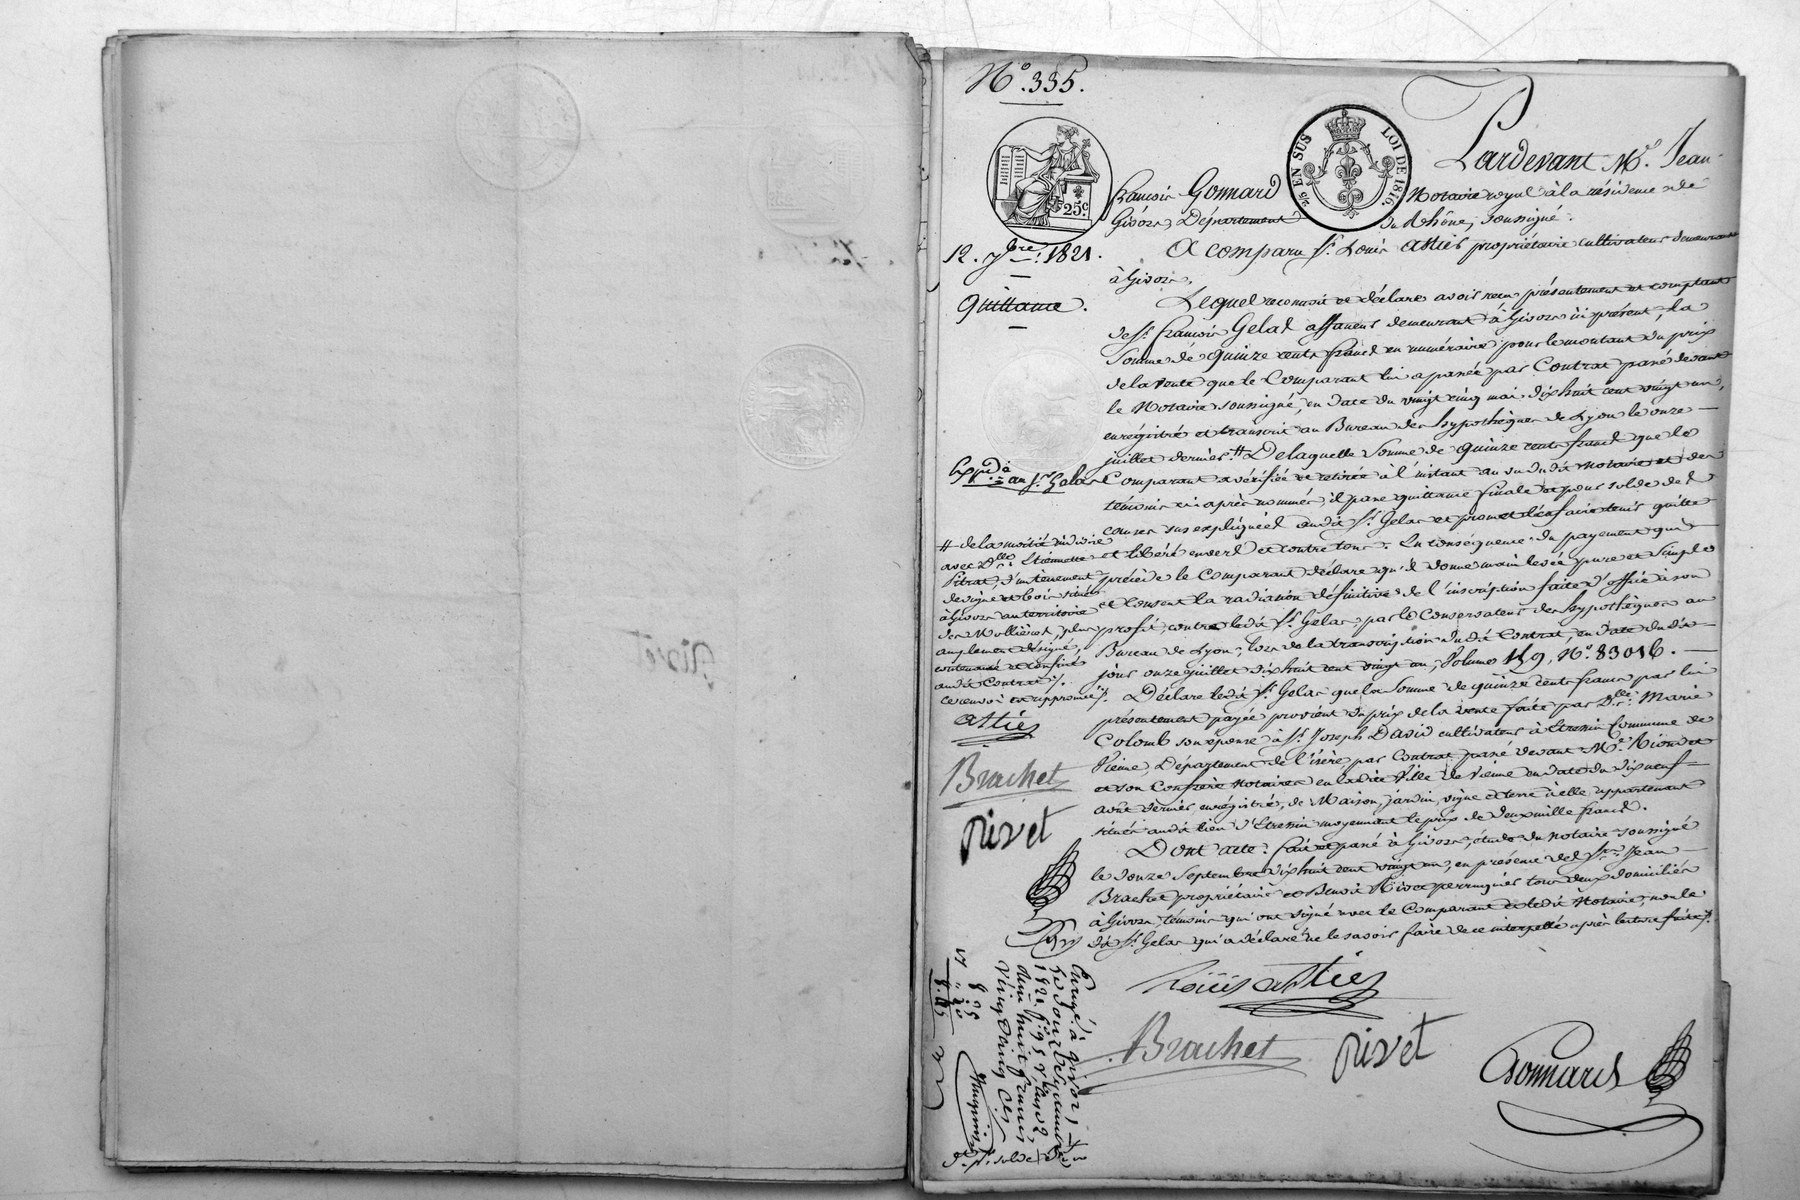 N.º 335.
25 EN SUS LOI DE 1816.
25.c
Pardevant M.e Jean
francois Gonnard Notaire royal à la résidence de
Givors, Département du Rhône, soussigné.
12. 7bre. 1821.
A comparu S.r Louis Attier propriétaire cultivateur demeurant
à Givors,
Quittance.
Lequel reconnoit et déclare avoir reçu présentement et comptant
de S.r francois Gelas affaneur demeurant à Givors ici présent, la
Somme de quinze cents francs en numéraire pour le montant du prix
de la vente que le Comparant lui a passée par Contrat passé devant
le Notaire soussigné, en date du vingt cinq mai dix huit cent vingt un,
enrégistré et transcrit au Bureau des hypothèques de Lyon le onze
juillet dernier # De laquelle Somme de quinze cents francs que le
Exp.d à
au S.r Gelas
Comparant a vérifiée et retirée à l'instant au vu dudit Notaire et des
témoins ci après nommés, il passe quittance finale et pour solde des
causes sus expliquées audit S.r Gelas et promet l'en faire tenir quitte
et libéré envers et contre tous. En conséquence du payement qui
précède le Comparant déclare qu'il donne main levée pure et simple
et consent la radiation définitive de l'inscription faite d'office à son
profit, contre ledit S.r Gelas, par le Conservateur des hypothèques au
Bureau de Lyon, lors de la transcription dudit Contrat, en date du dit
jour onze juillet dix huit cent vingt un, Volume 159, N.º 83016.
# de la moitié indivise
avec D.lle Etiennette
Pitrat, d'un tènement
de vigne et bois situés
à Givors au territoire
des Mollières, plus
amplement désigné,
contenancé et confiné
audit Contrat ./.
ce renvoi est approuvé ./.
Attier
Brachet
Rivet
Déclare ledit S.r Gelas que la Somme de quinze cents francs par lui
présentement payée provient du prix de la vente faite par D.lle Marie
Colomb son épouse à S.r Joseph David cultivateur à Etressin Commune de
Vienne, Département de l'isère, par Contrat passé devant M.e
et son Confrère Notaires en ladite Ville de Vienne en date du dix neuf
août dernier enrégistré, de Maison, jardin, vigne et terre à elle appartenant
situés audit lieu d'Etressin moyennant le prix de deux mille francs.
Dont acte: fait et passé à Givors, étude du Notaire soussigné
le douze Septembre dix huit cent vingt un, en présence des S.rs Jean
Brachet propriétaire et Benoit Rivet perruquier tous deux domiciliés
à Givors, témoins qui ont signé avec le Comparant et ledit Notaire, non le
dit S.r Gelas qui a déclaré ne le savoir faire de ce interpellé après lecture faite ./.
Louis Attier
Brachet Rivet Gonnard
Enregé. à Givors,
le douze Septembre
1821, f.º 95
reçu huit francs
vingt cinq c.es
8. 25